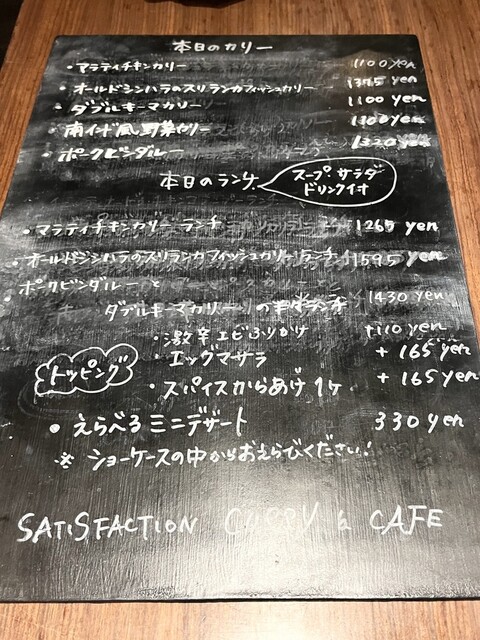 本日のカリー
・マラティチキンカリー 1100yen
・オールドシンハラのスリランカフィッシュカリー 1375yen
・ダブルキーマカリー 1100yen
・南インド風野菜カリー 1300yen
・ポークビンダルー 1320yen
本日のランチ
スープ、サラダ
ドリンク付
・マラティチキンカリー ランチ 1265yen
・オールドシンハラのスリランカフィッシュカリーランチ 1595yen
ポークビンダルーと
ダブルキーマカリーの半々ランチ 1430yen
・激辛エビふりかけ +110yen
トッピング
・エッグマサラ +165yen
・スパイスからあげ1ヶ +165yen
・えらべるミニデザート 330yen
※ショーケースの中からおえらびください!
SATISFACTION CURRY & CAFE